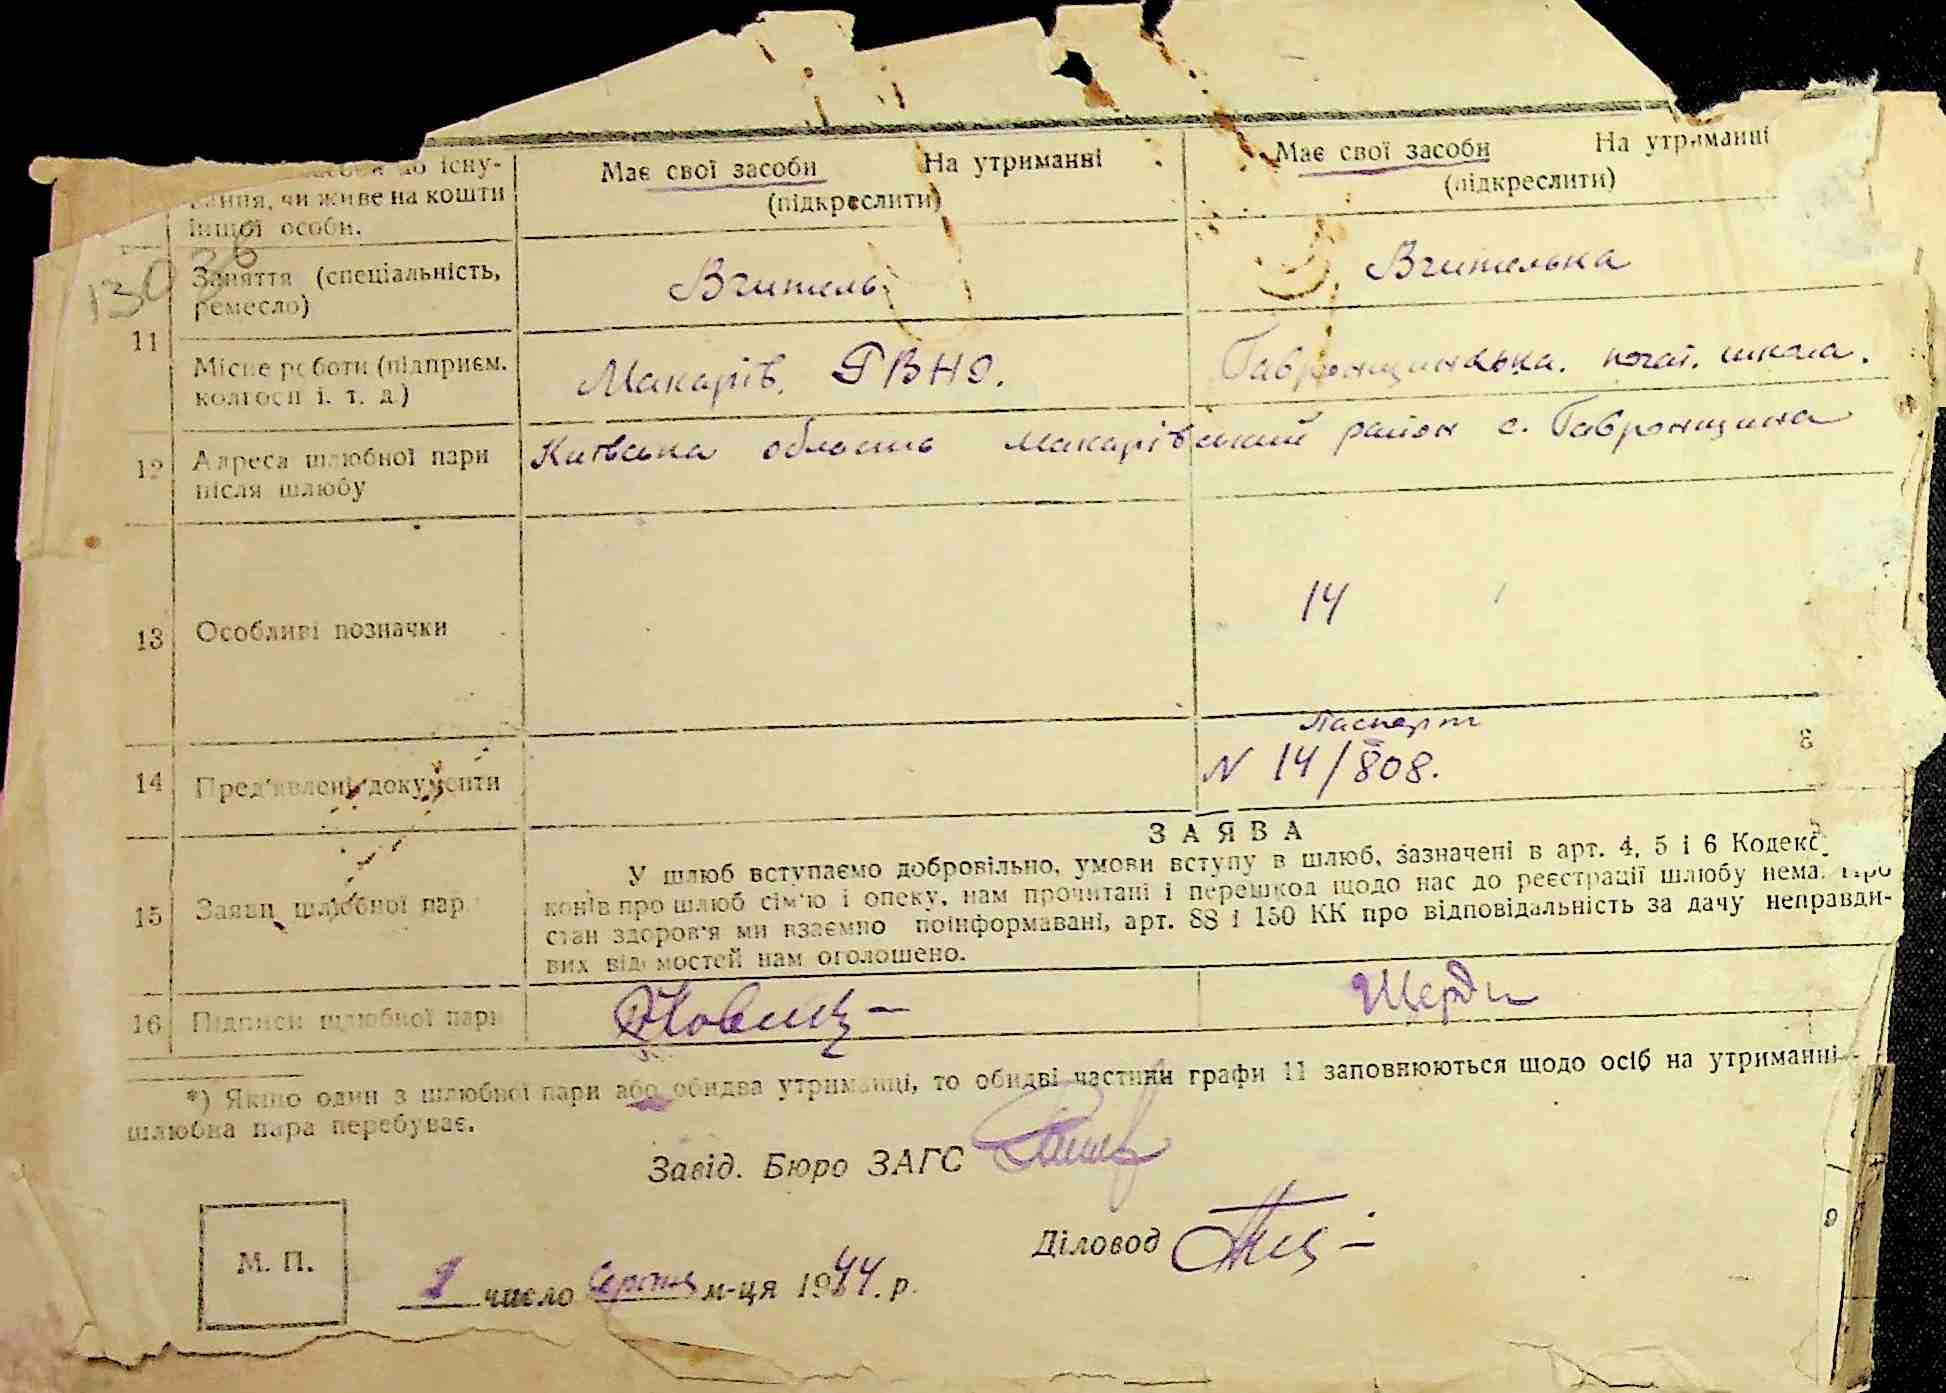 до існу-
вання, чи живе на кошти
іншої особи.
Має свої засоби На утриманні
(підкреслити)
Має свої засоби На утриманні
(підкреслити)
11
Заняття (спеціальність,
ремесло)
Вчитель
Вчителька
Місце роботи (підприєм.
колгосп і. т. д.)
Макарів. РВНО.
Гавронщинська. почат. школа.
12
Адреса шлюбної пари
після шлюбу
Київська область Макарівський район с. Гавронщина
13
Особливі позначки
14
14
Пред'явлені документи
Паспорт
N 14/808.
З А Я В А
15
Заяви шлюбної пари
У шлюб вступаємо добровільно, умови вступу в шлюб, зазначені в арт. 4, 5 і 6 Кодекс
конів про шлюб сім'ю і опеку, нам прочитані і перешкод щодо нас до реєстрації шлюбу нема. Про
стан здоров'я ми взаємно поінформавані, арт. 88 і 150 КК про відповідальність за дачу неправди-
вих відомостей нам оголошено.
16
Підписи шлюбної пари
*) Якщо один з шлюбної пари або обидва утриманці, то обидві частини графи 11 заповнюються щодо осіб на утриманні
шлюбна пара перебуває.
Завід. Бюро ЗАГС
Діловод
М. П.
число серпня м-ця 1944. р.